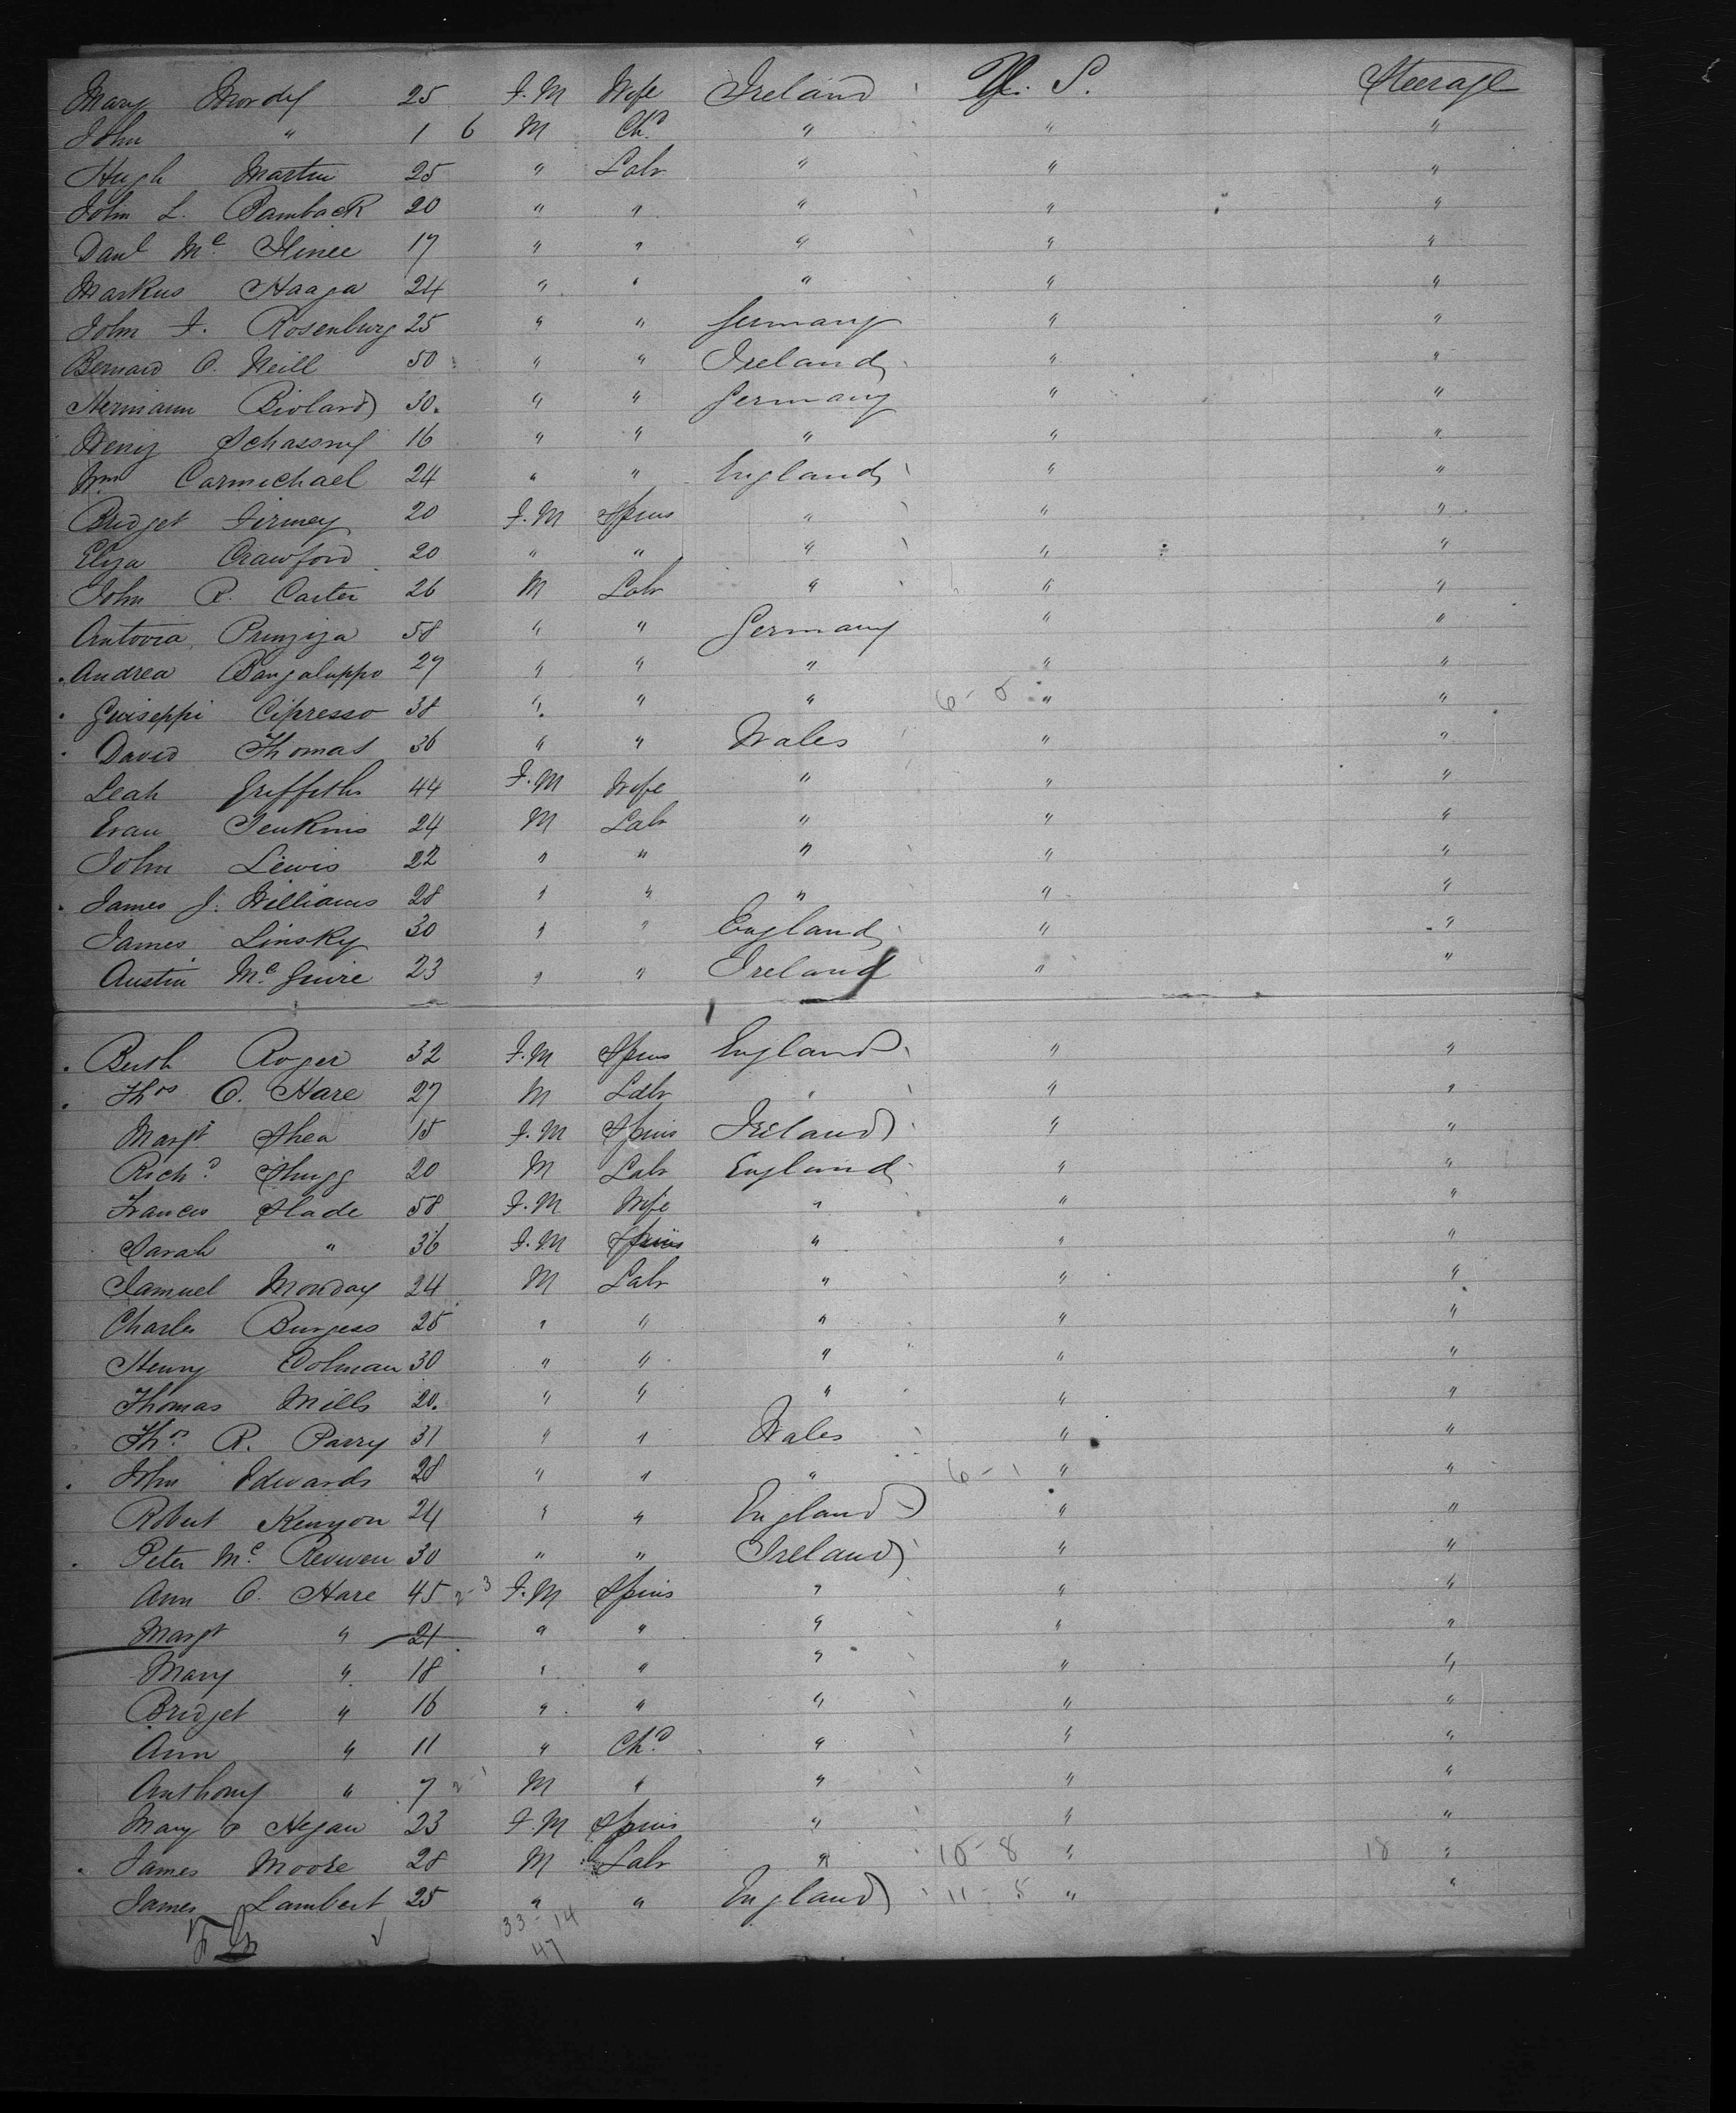 Mary Mordy 25 F.M Wife Ireland U. S. Steerage
John " 1 6 M Chd " " "
Hugh Martin 25 " Labr " " "
John L. Bamback 20 " " " " "
Danl Mc Hinee 17 " " " " "
Markus Haaga 24 " " " " "
John F. Rosenburg 25 " " Germany " "
Bernard O. Neill 50 " " Ireland " "
Hermann Biolard 30. " " Germany " "
Henry 16 " " " " "
Wm Carmichael 24 " " England " "
Bridget Firmey 20 F.M Spins " " "
Eliza Crawford 20 " " " " "
John R. Carter 26 M Labr " " "
Antovia Prinziza 58 " " Germany " "
Andrea Bangaluppo 27 " " " " "
Guiseppi Cipresso 38 " " " 6 - 5 " "
David Thomas 36 " " Wales " "
Leah Griffiths 44 F.M Wife " " "
Evan Jenkins 24 M Labr " " "
John Lewis 22 " " " " "
James J. Williams 28 " " " " "
James Linsky 30 " " England " "
Austin Mc Guire 23 " " Ireland " "
Beith Roger 32 F.M Spins England " "
Thos O. Hare 27 M Labr " " "
Margt Shea 15 F.M Spins Ireland " "
Richd Shugg 20 M Labr England " "
Frances Slade 58 F.M Wife " " "
Sarah " 36 F.M Spins " " "
Samuel Monday 24 M Labr " " "
Charles Burgess 25 " " " " "
Henry Colman 30 " " " " "
Thomas Mills 20. " " " " "
Thos R. Parry 31 " " Wales " "
John Edwards 28 " " " 6 - 1 " "
Robert Kenyon 24 " " England " "
Peter Mc 30 " " Ireland " "
Ann O. Hare 45 2-3 F.M Spins " " "
Margt " 21 " " " " "
Mary " 18 " " " " "
Bridget " 16 " " " " "
Ann " 11 " Chd " " "
Anthony " 7 2-1 M " " " "
Mary O Hegan 23 F.M Spins " " "
James Moore 28 M Labr " 10-8 " 18 "
James Lambert 25 " " England 11-8 " "
33-14
47